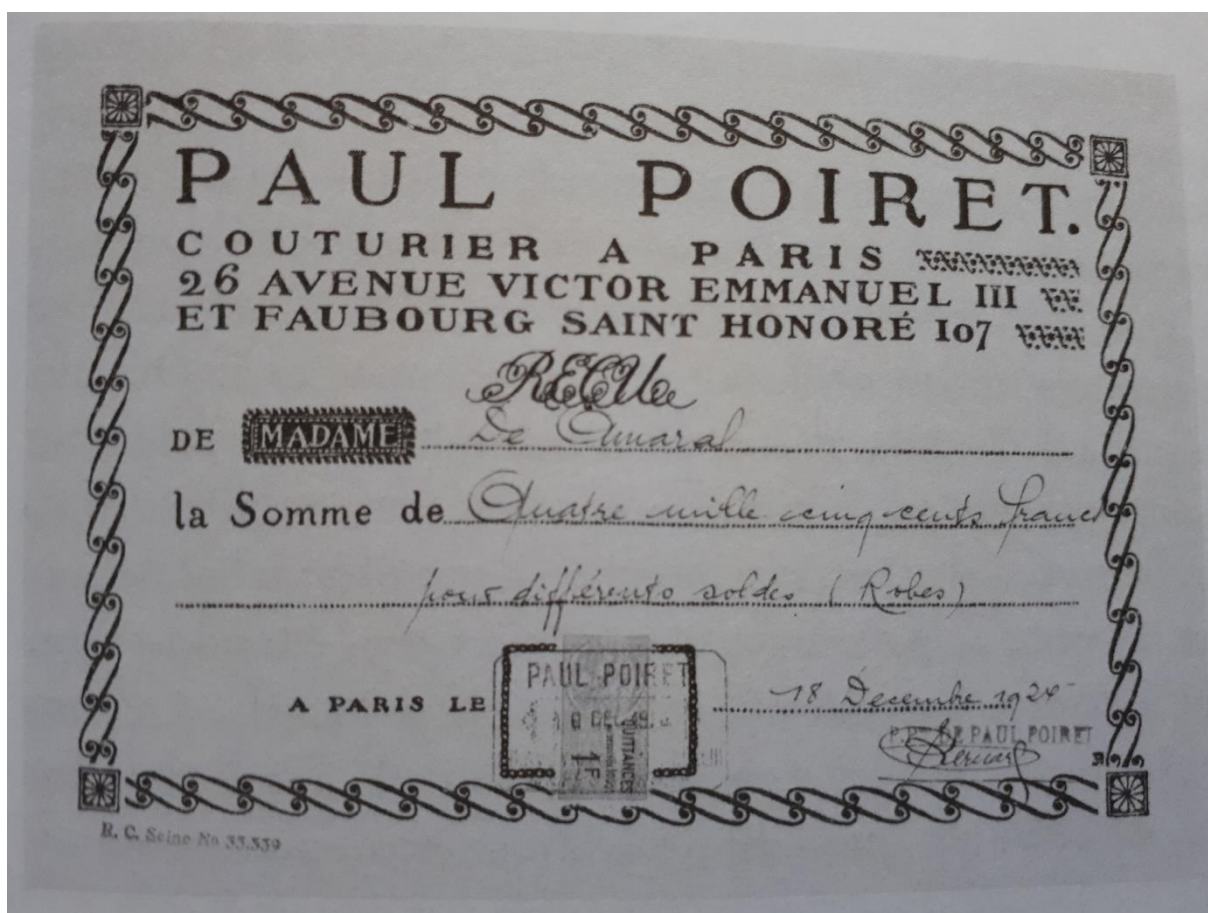 PAUL POIRET.
COUTURIER A PARIS
26 AVENUE VICTOR EMMANUEL III
ET FAUBOURG SAINT HONORÉ 107
REÇU
DE MADAME De Amaral
la Somme de Quatre mille cinq cents francs
pour différents soldes (Robes)
A PARIS LE 18 Decembre 192
PAUL POIRET
DEC
QUITTANCES
1F
DE PAUL POIRET
R. C. Seine No 33.339